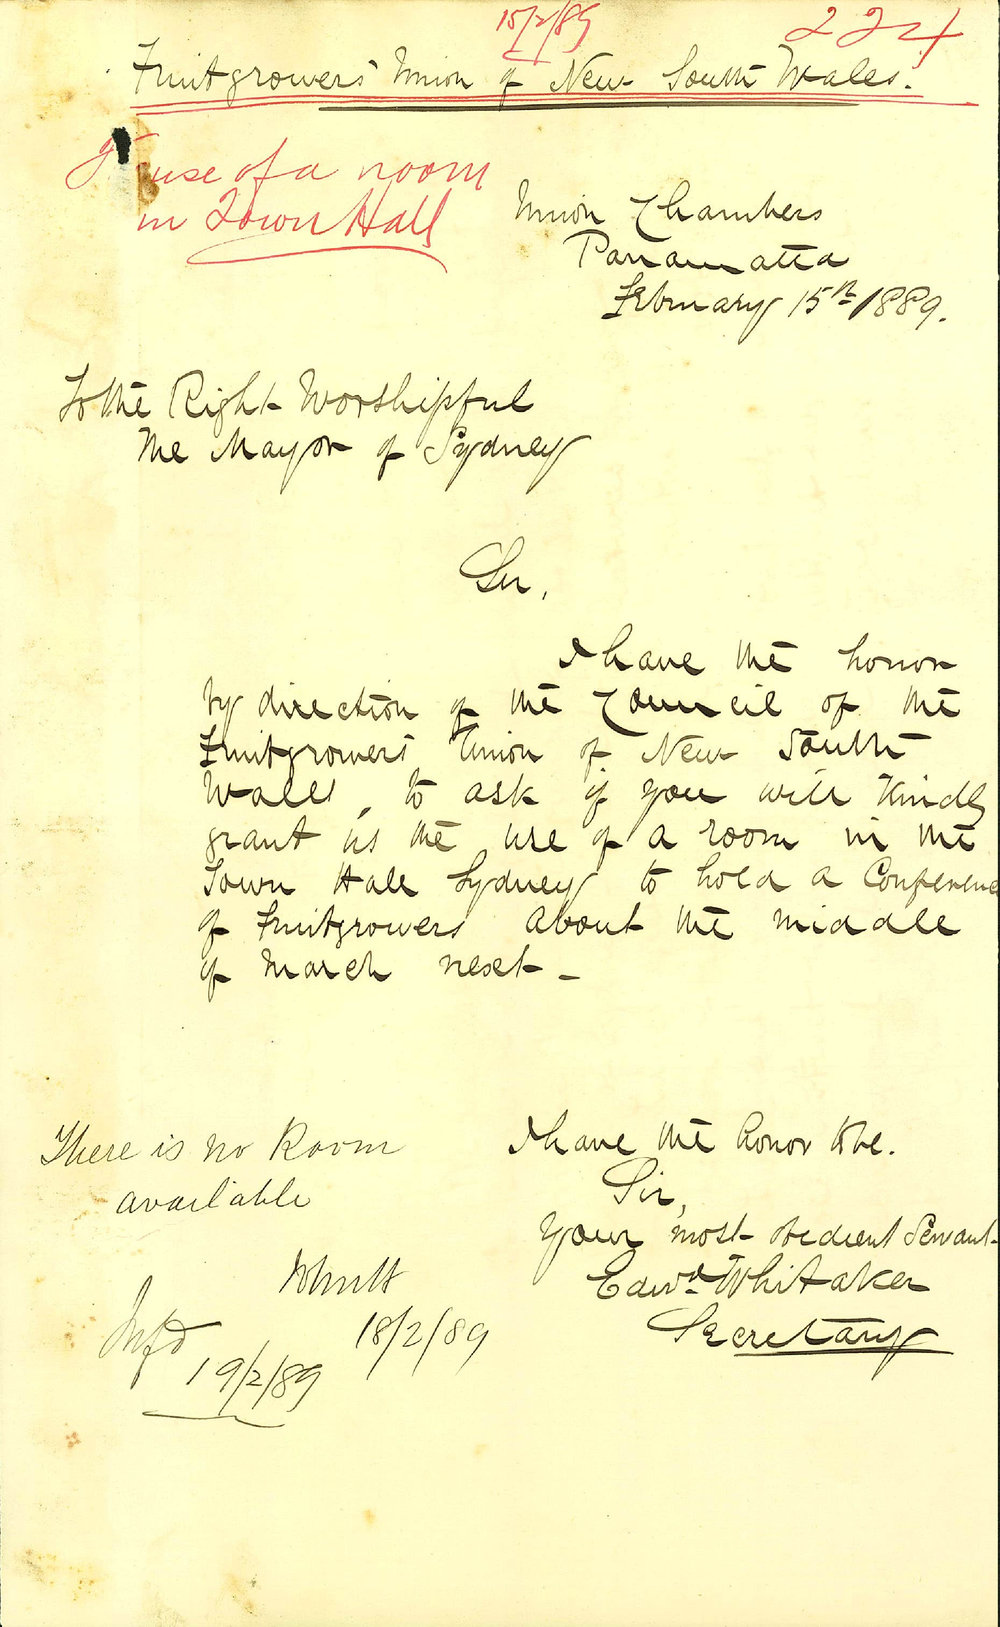 15/2/89
224
Fruitgrowers' Union of New South Wales.
use of a room
in Town Hall
Union Chambers
Parramatta
February 15th 1889.
To the Right Worshipful
The Mayor of Sydney
Sir,
I have the honor
by direction of the Council of the
Fruitgrowers' Union of New South
Wales, to ask if you will kindly
grant us the use of a room in the
Town Hall Sydney to hold a Conference
of Fruitgrowers about the middle
of March next -
I have the honor to be.
Sir,
Your most obedient Servant
Edwd Whitaker
Secretary
There is no Room
available
18/2/89
Infd
19/2/89